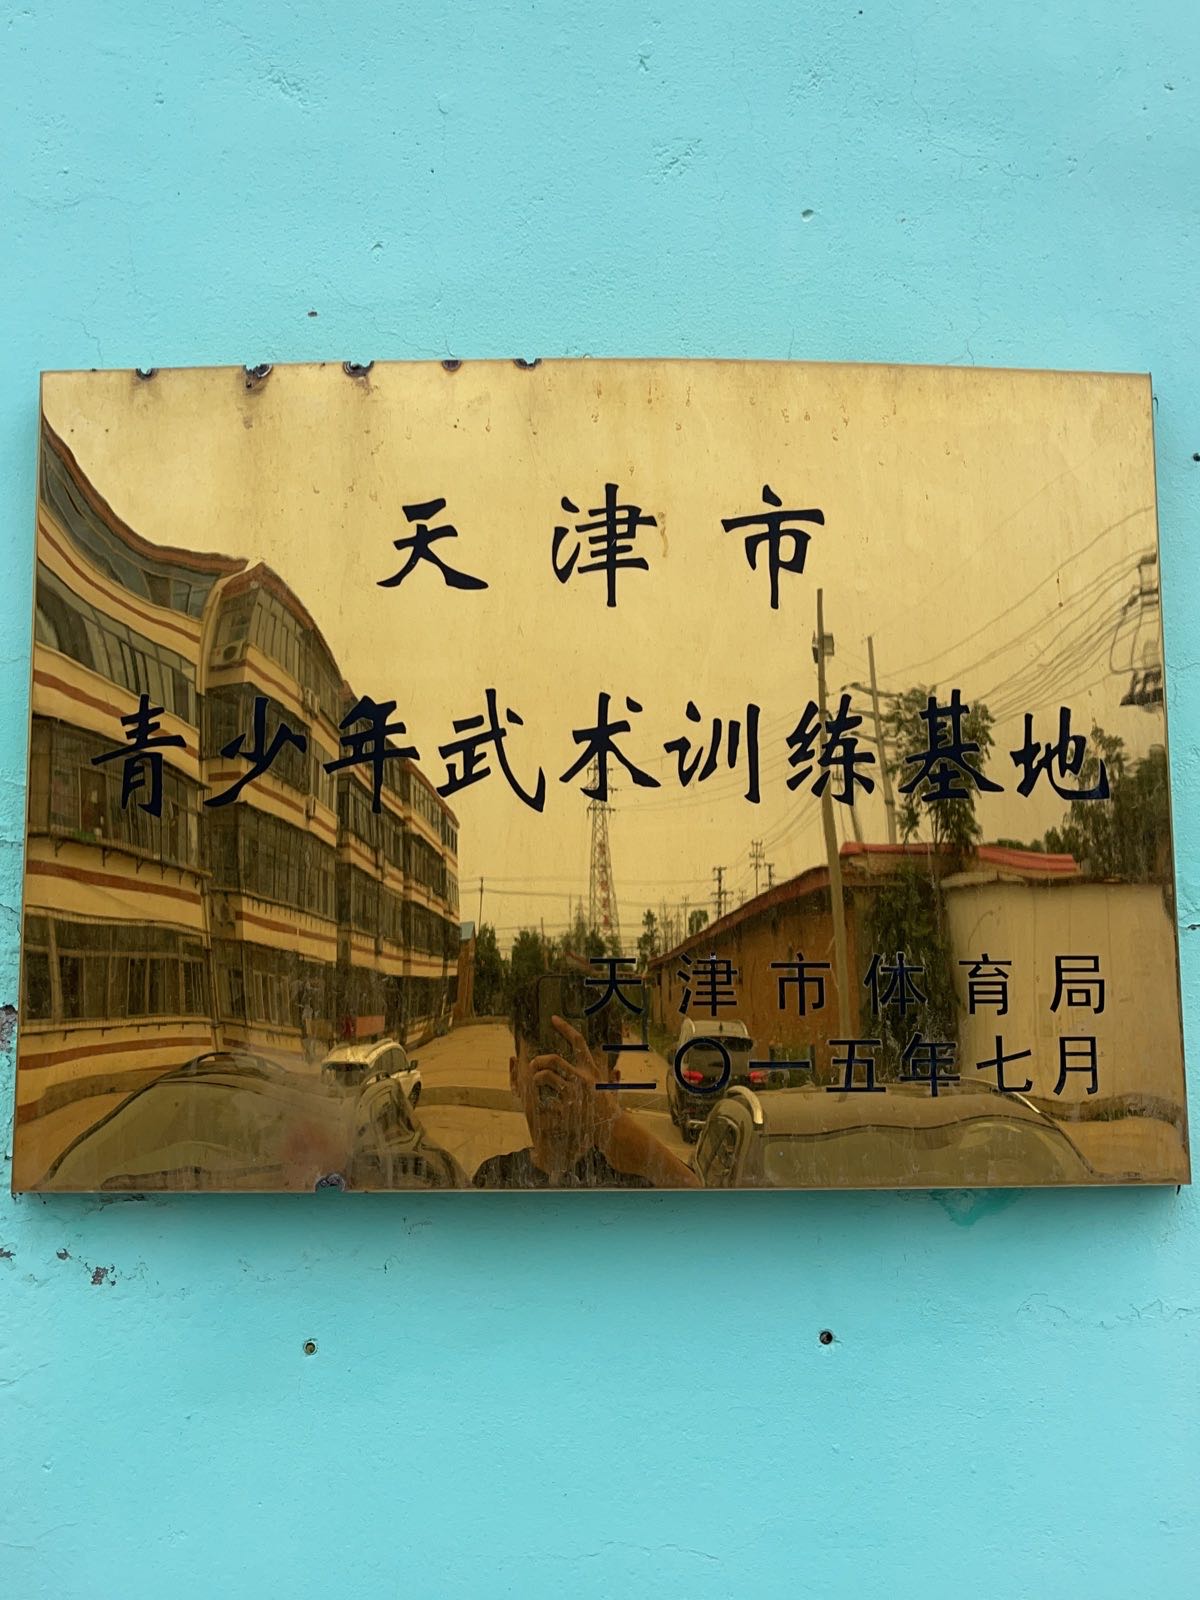 天津市
青少年武术训练基地
天津市体育局
二〇一五年七月